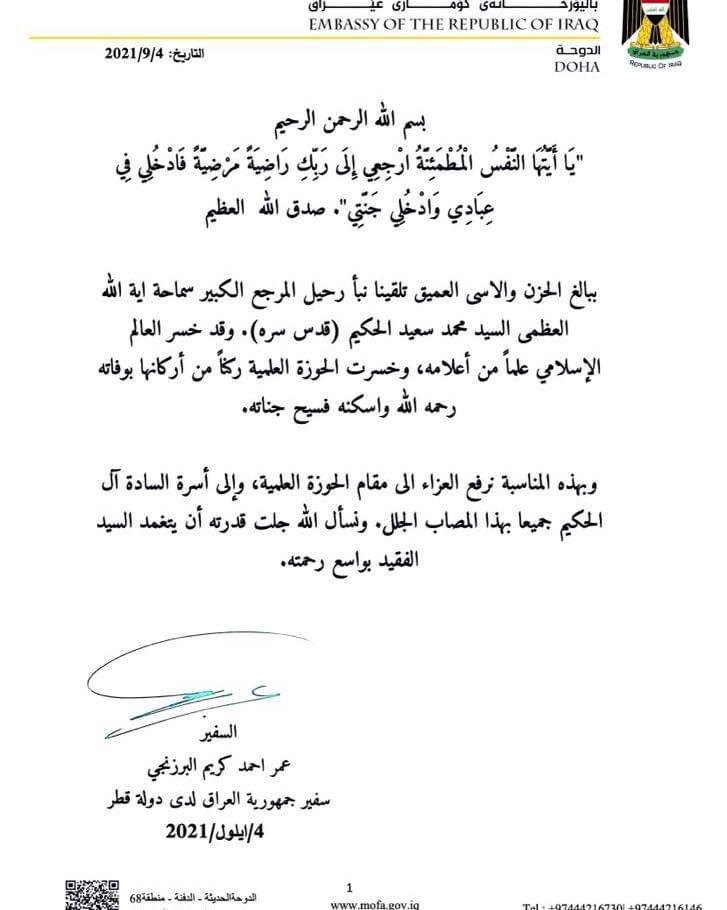 EMBASSY OF THE REPUBLIC OF IRAQ
الدوحة
DOHA
REPUBLIC OF IRAQ
التاريخ: 2021/9/4
بسم الله الرحمن الرحيم
"يَا أَيَّتُهَا النَّفْسُ الْمُطْمَئِنَّةُ ارْجِعِي إِلَى رَبِّكِ رَاضِيَةً مَرْضِيَّةً فَادْخُلِي فِي
عِبَادِي وَادْخُلِي جَنَّتِي". صدق الله العظيم
ببالغ الحزن والاسى العميق تلقينا نبأ رحيل المرجع الكبير سماحة اية الله
العظمى السيد محمد سعيد الحكيم (قدس سره). وقد خسر العالم
الإسلامي علماً من أعلامه، وخسرت الحوزة العلمية ركناً من أركانها بوفاته
رحمه الله واسكنه فسيح جناته.
وبهذه المناسبة نرفع العزاء الى مقام الحوزة العلمية، وإلى أسرة السادة آل
الحكيم جميعا بهذا المصاب الجلل. ونسأل الله جلت قدرته أن يتغمد السيد
الفقيد بواسع رحمته.
السفير
عمر احمد كريم البرزنجي
سفير جمهورية العراق لدى دولة قطر
4/ايلول/2021
1
الدوحةالحديثة - الدفنة - منطقة68
www.mofa.gov.iq
Tel : +97444216730| +97444216146